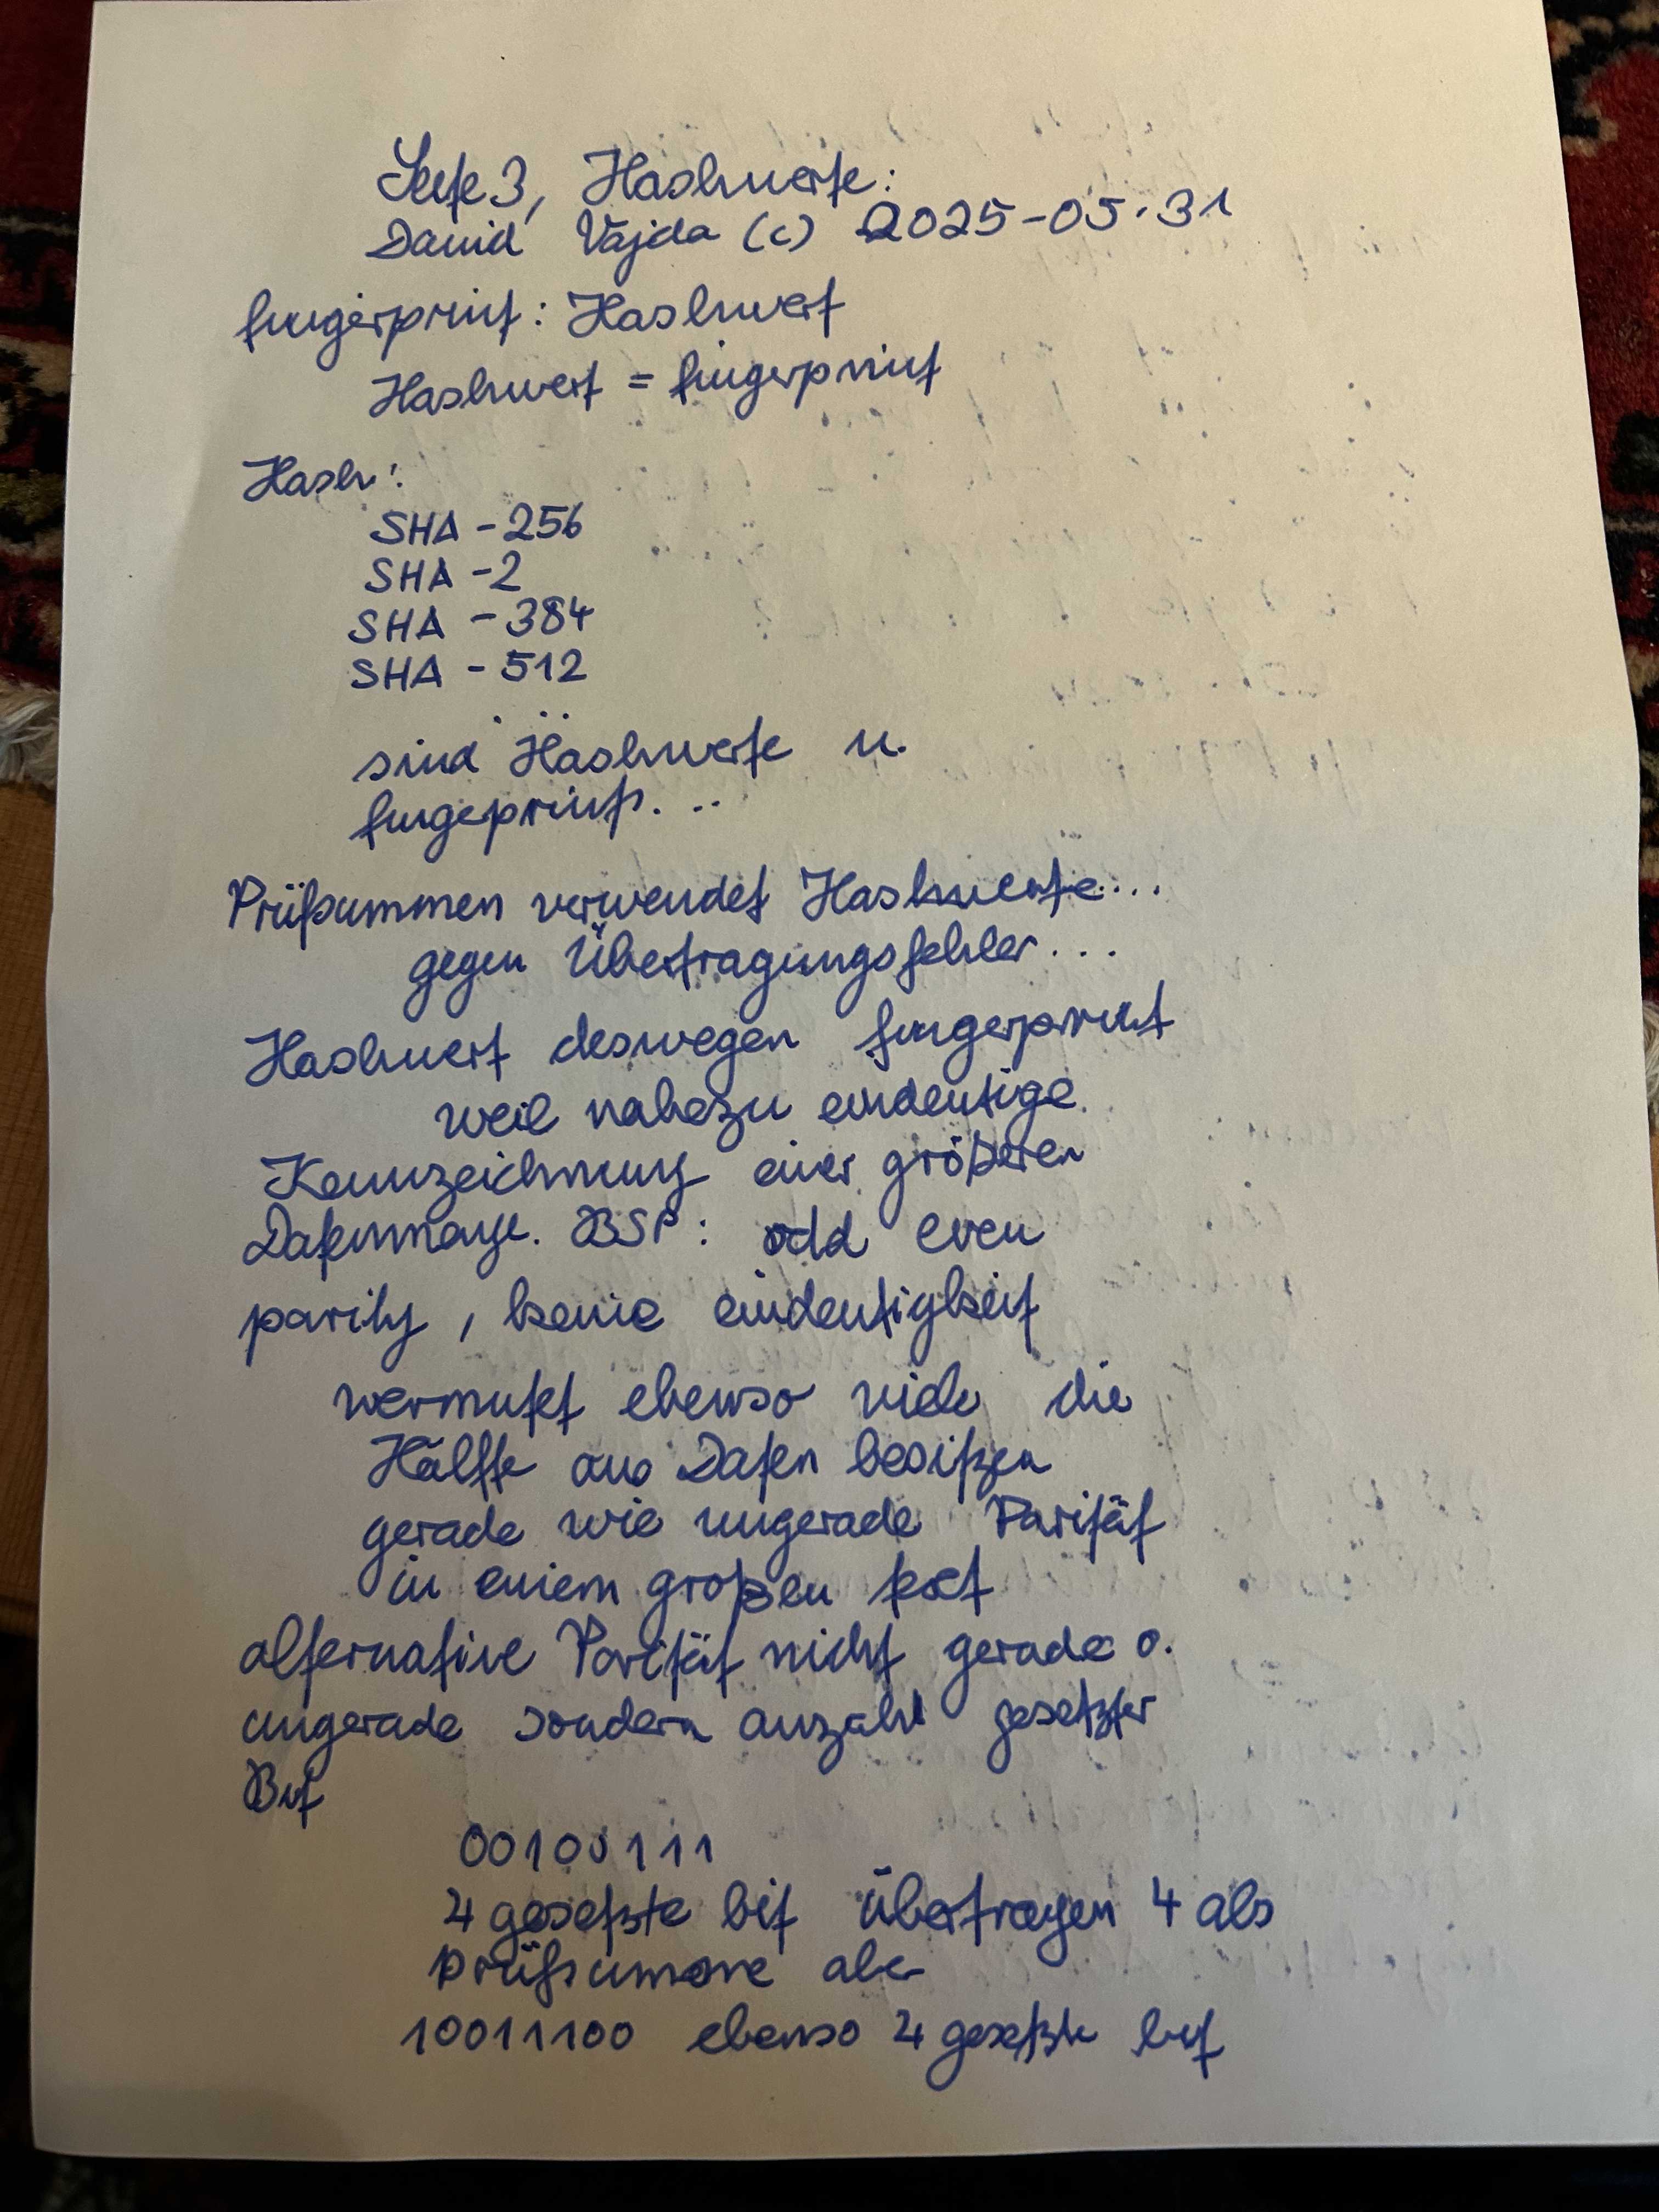 Seite 3, Hashwerte:
David Vajda (c) 2025-05-31
fingerprint: Hashwert
Hashwert = fingerprint
Hash:
SHA-256
SHA-2
SHA-384
SHA-512
...
sind Hashwerte u.
fingeprints. ..
Prüfsummen verwendet Hashwerte....
gegen Übertragungsfehler...
Hashwert deswegen fingerprint
weil nahezu eindeutige
Kennzeichnung einer größeren
Datenmenge. BSP: odd even
parity, keine eindeutigkeit
vermutet ebenso viele die
Hälfte aus Daten besitzen
gerade wie ungerade Parität
in einem großen
alternative Parität nicht gerade o.
ungerade sondern anzahl gesetzter
Bit
00100111
4 gesetzte bit übertragen 4 als
prüfsumme aber
10011100 ebenso 4 gesetzte bit